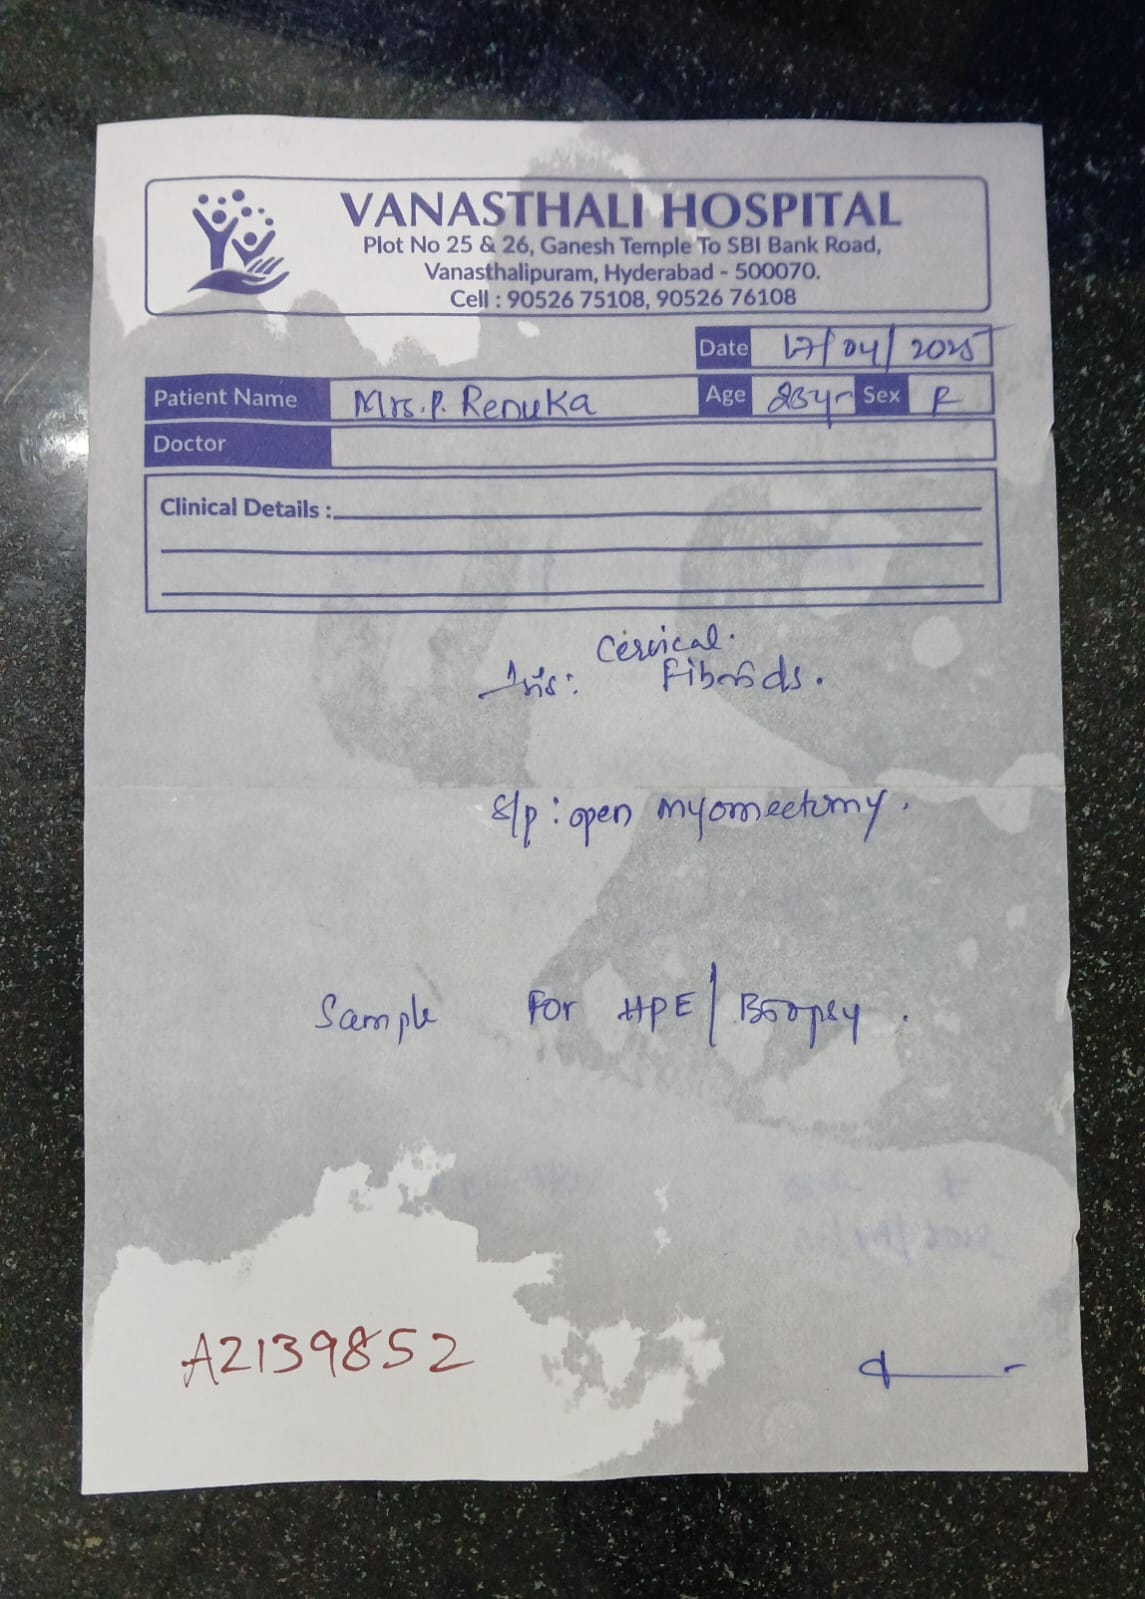 VANASTHALI HOSPITAL
Plot No 25 & 26, Ganesh Temple To SBI Bank Road,
Vanasthalipuram, Hyderabad - 500070.
Cell : 90526 75108, 90526 76108
Date 17/04/2025
Patient Name Mrs. P. Renuka Age 23yr Sex F
Doctor
Clinical Details :
Cervical.
Fibroids.
S/p : open myomectomy.
Sample For HPE/Biopsy.
A2139852